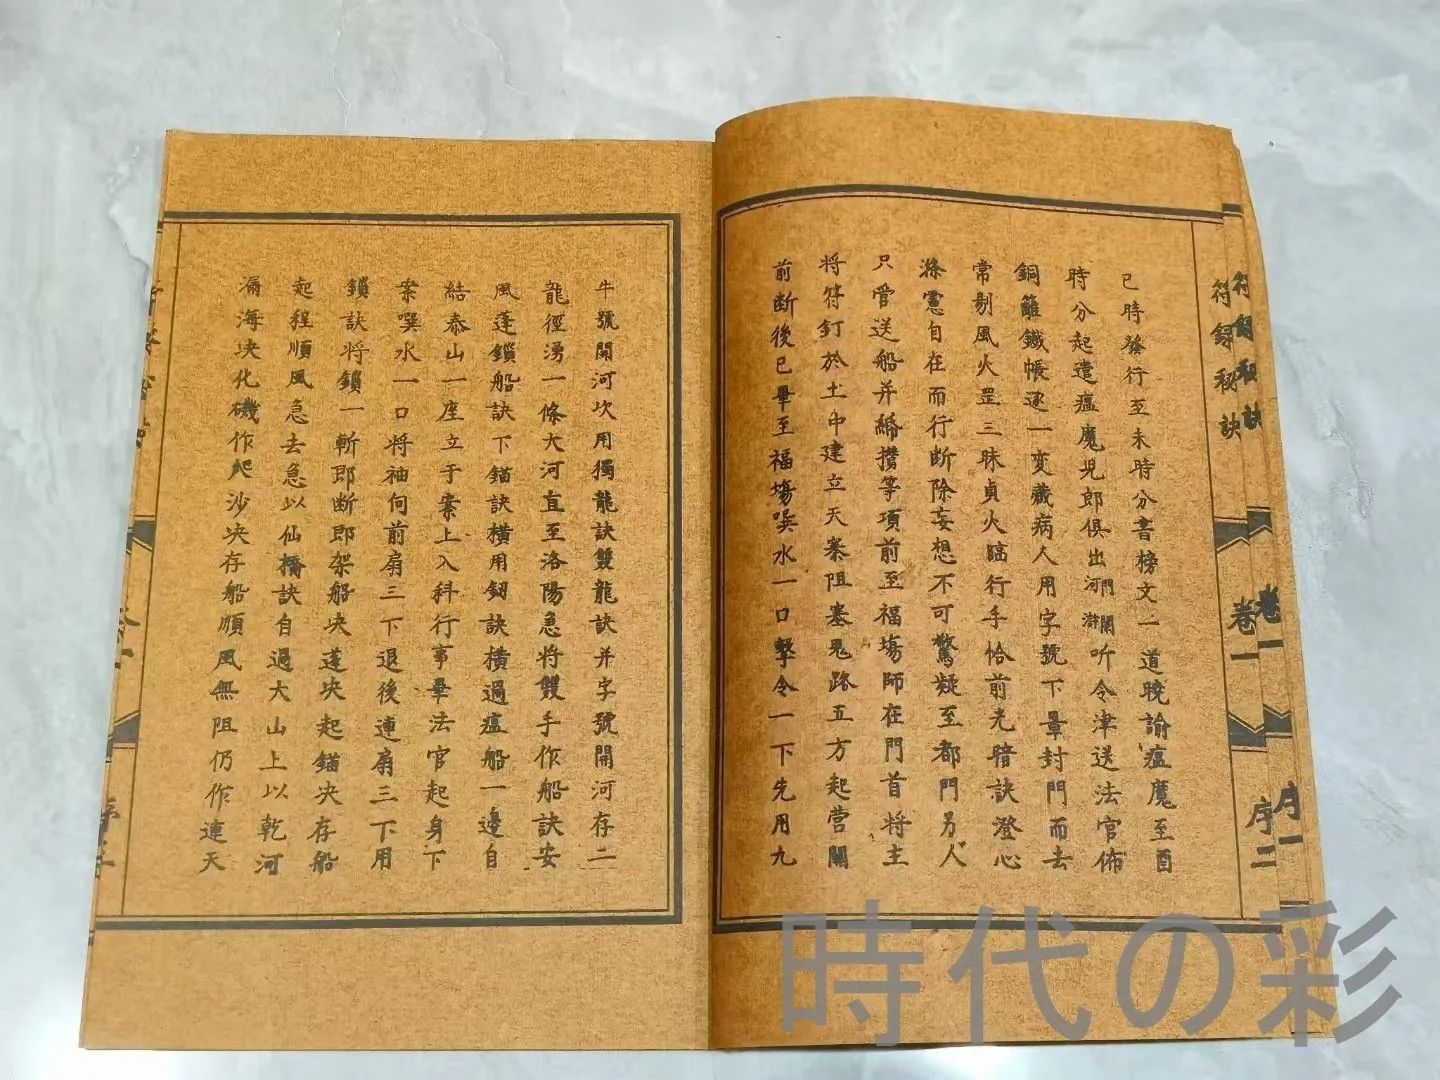 符録秘訣 卷一 序一
符録秘訣 卷一 序二
已時發行至未時分書榜文一道曉諭瘟魔至酉
時分起遣瘟魔児郎俱出河澗開听令津送法官佈
銅籬鐵帳逐一変藏病人用字號下罩封門而去
常剔風火罡三昧貞火臨行手恰前光暗訣澄心
滌慮自在而行断除妄想不可驚疑至都門另人
只管送船并綿攢等項前至福場師在門首將主
將符釘於土中建立天寨阻塞鬼路五方起营關
前断後已畢至福塲噀水一口擊令一下先用九
牛號開河坎用獨龍訣雙龍訣并字號開河存二
龍徑湧一條大河直至洛陽急將雙手作船訣安
風蓬鎖船訣下錨訣横用釼訣橫過瘟船一邊自
結泰山一座立于案上入科行事畢法官起身下
案噀水一口將袖伺前扇三下退後連扇三下用
鎖訣將鎖一斬即断即架船块蓬块起錨块存船
起程順風急去急以仙橋訣自過大山上以乾河
涸海块化磯作爬沙块存船順風無阻仍作連天
時代の彩